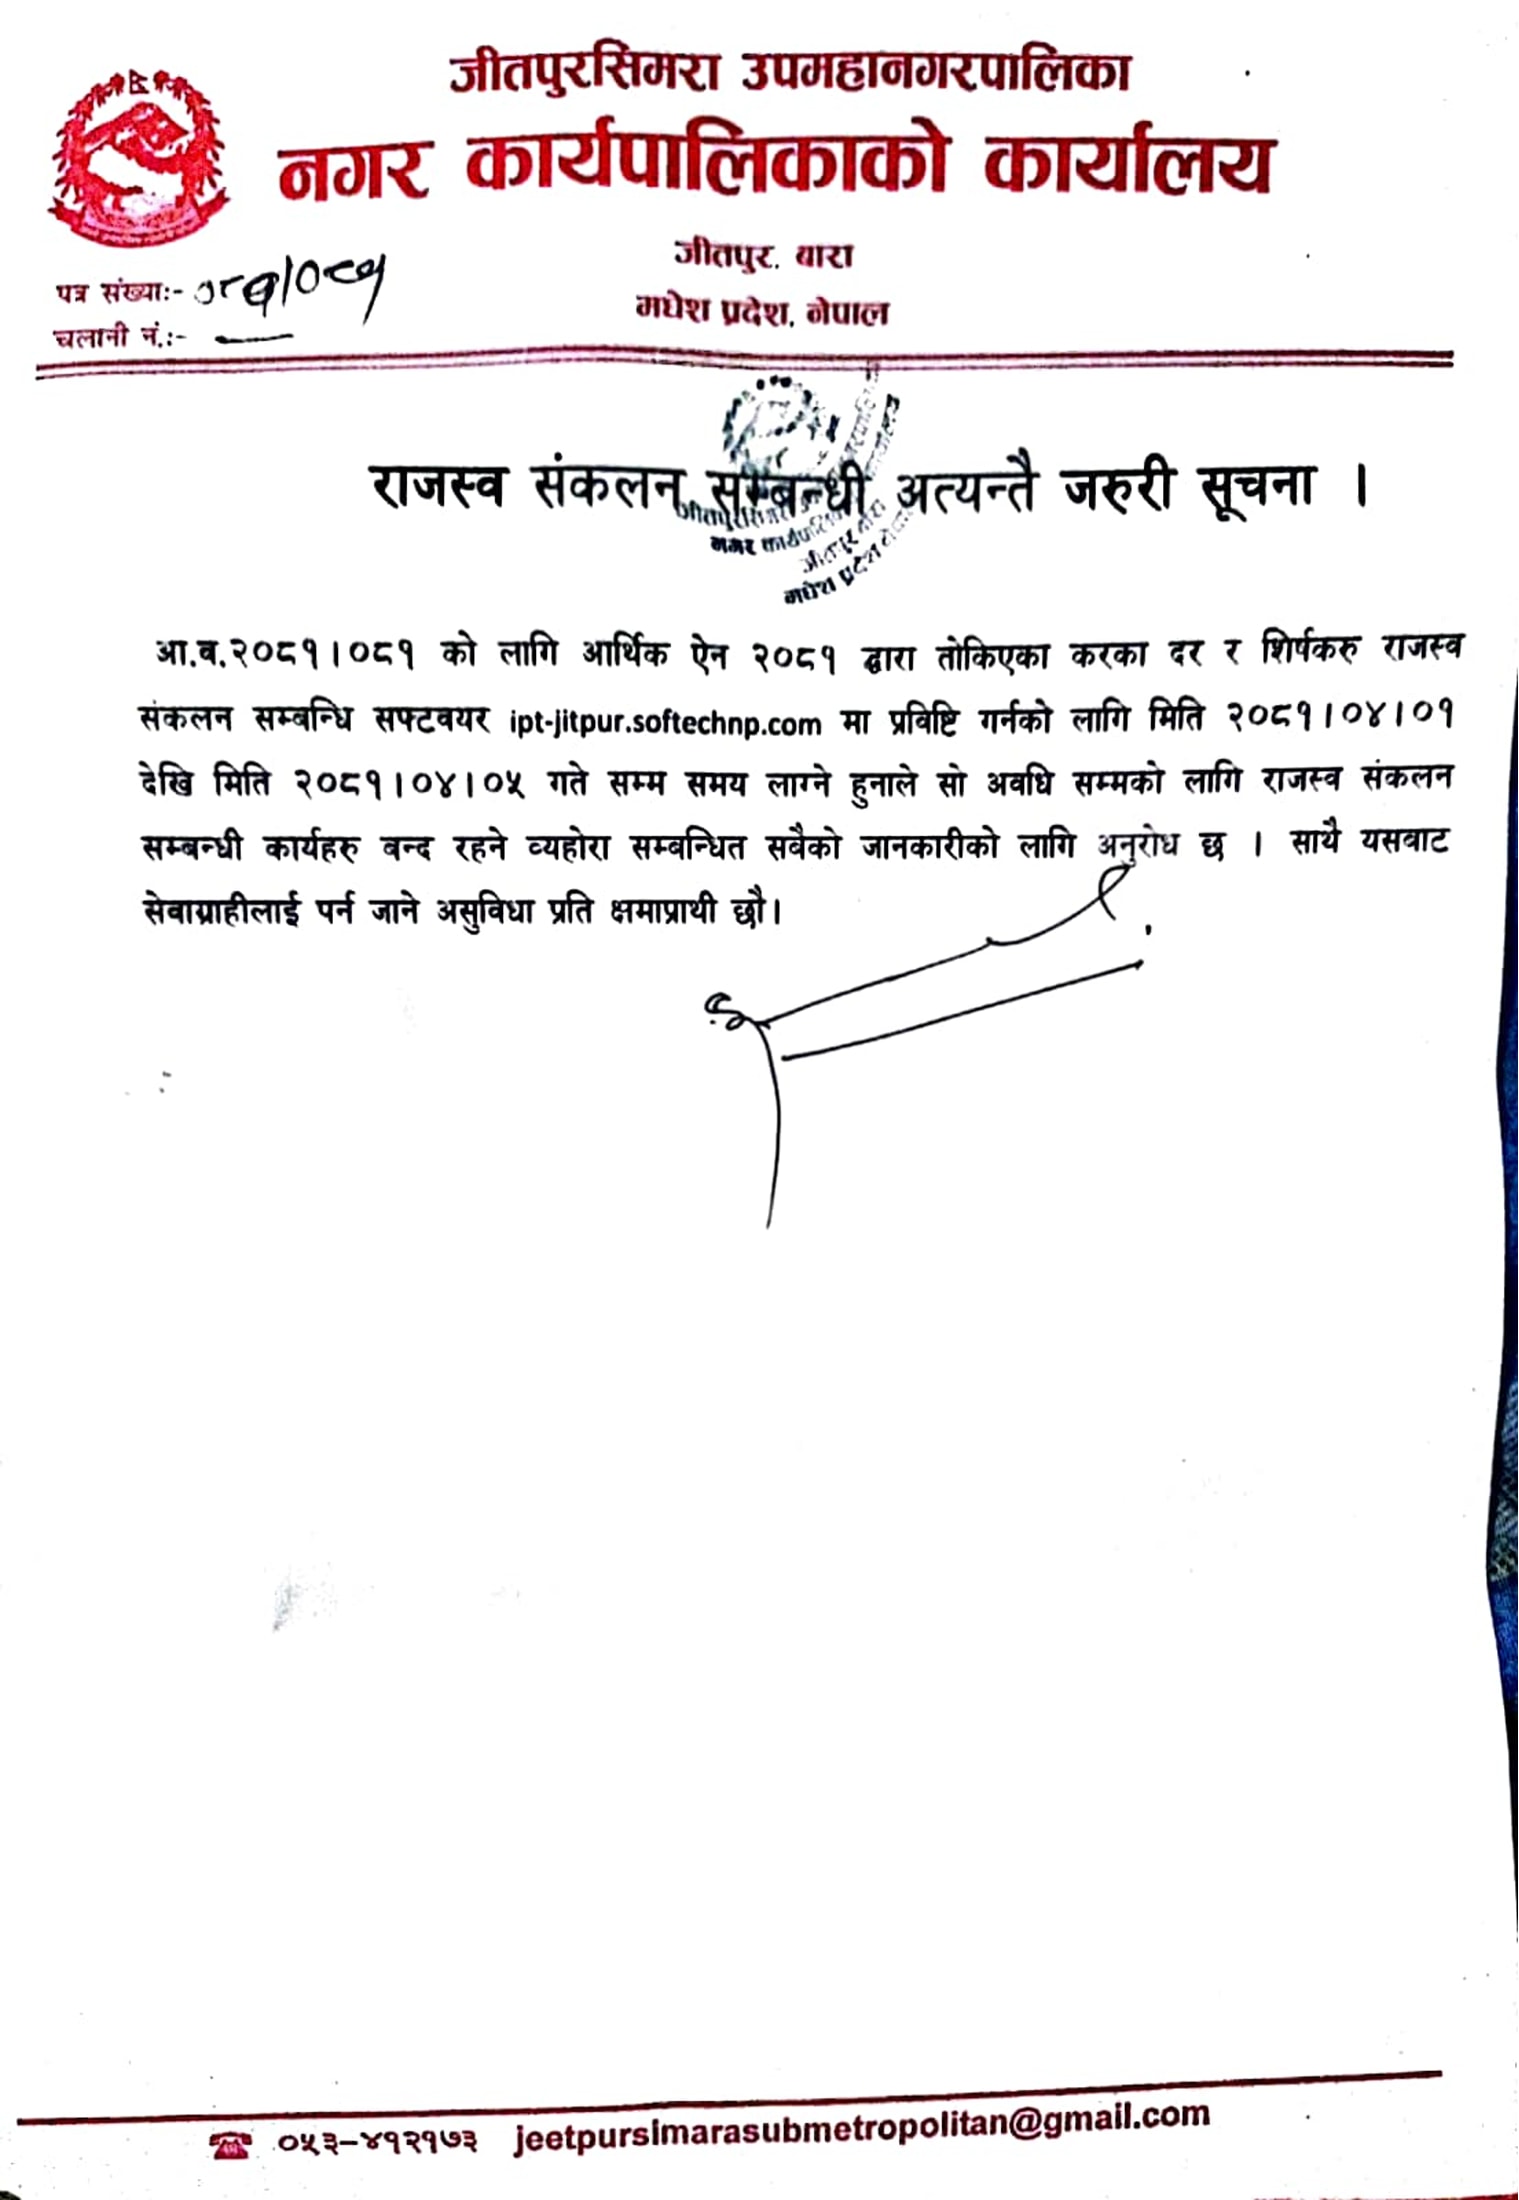 जीतपुरसिमरा उपमहानगरपालिका
नगर कार्यपालिकाको कार्यालय
जीतपुर, बारा
मधेश प्रदेश, नेपाल
पत्र संख्याः-
चलानी नं.:-
राजस्व संकलन सम्बन्धी अत्यन्तै जरुरी सूचना ।
आ.व.२०८१।०८१ को लागि आर्थिक ऐन २०८१ द्वारा तोकिएका करका दर र शिर्षकरु राजस्व
संकलन सम्बन्धि सफ्टवयर ipt-jitpur.softechnp.com मा प्रविष्टि गर्नको लागि मिति २०८१।०४।०१
देखि मिति २०८१।०४।०५ गते सम्म समय लाग्ने हुनाले सो अवधि सम्मको लागि राजस्व संकलन
सम्बन्धी कार्यहरु बन्द रहने व्यहोरा सम्बन्धित सबैको जानकारीको लागि अनुरोध छ । साथै यसबाट
सेवाग्राहीलाई पर्न जाने असुविधा प्रति क्षमाप्राथी छौ।
०५३-४१२१७३ jeetpursimarasubmetropolitan@gmail.com